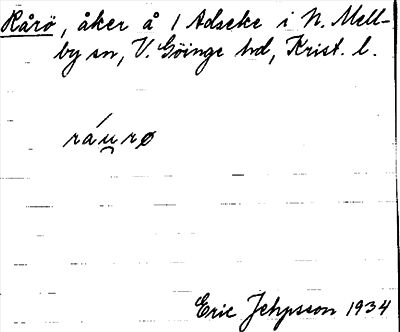 Rårö, åker å 1 Adseke i N. Mell-
by sn, V. Göinge hd, Krist. l.
ráu̯rø
Eric Jephsson 1934